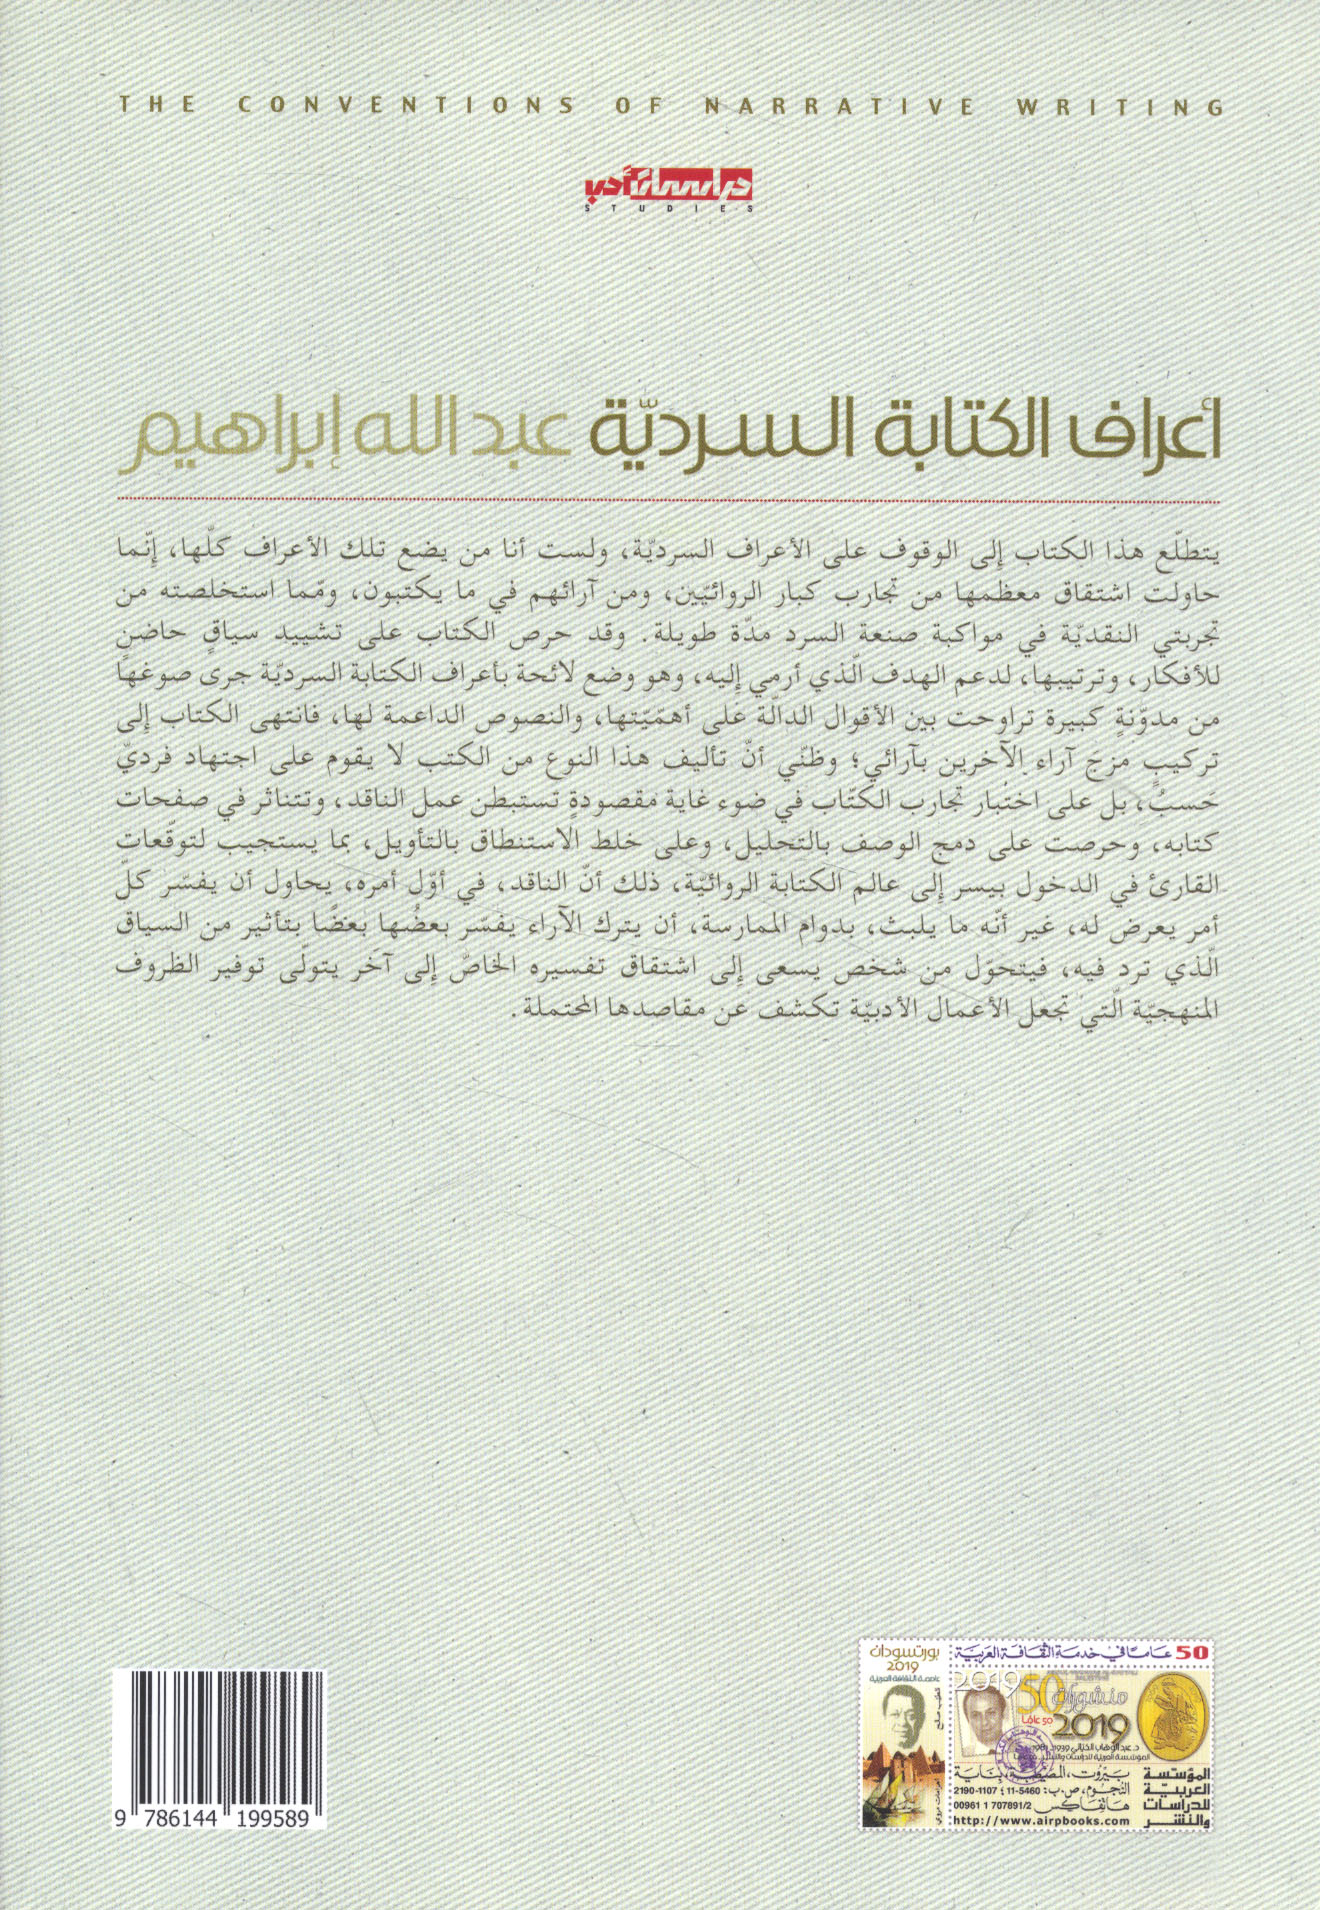 THE CONVENTIONS OF NARRATIVE WRITING
دراسات أدب
STUDIES
أعراف الكتابة السرديّة عبدالله إبراهيم
يتطلّع هذا الكتاب إلى الوقوف على الأعراف السرديّة، ولست أنا من يضع تلك الأعراف كلّها، إنّما
حاولت اشتقاق معظمها من تجارب كبار الروائيّين، ومن آرائهم في ما يكتبون، وممّا استخلصته من
تجربتي النقديّة في مواكبة صنعة السرد مدّة طويلة. وقد حرص الكتاب على تشييد سياقٍ حاضنٍ
للأفكار، وترتيبها، لدعم الهدف الّذي أرمي إليه، وهو وضع لائحة بأعراف الكتابة السرديّة جرى صوغها
من مدوّنةٍ كبيرة تراوحت بين الأقوال الدالّة على أهمّيّتها، والنصوص الداعمة لها، فانتهى الكتاب إلى
تركيبٍ مزجَ آراء الآخرين بآرائي؛ وظنّي أنّ تأليف هذا النوع من الكتب لا يقوم على اجتهاد فرديّ
حَسبُ، بل على اختبار تجارب الكتّاب في ضوء غاية مقصودةٍ تستبطن عمل الناقد، وتتناثر في صفحات
كتابه، وحرصت على دمج الوصف بالتحليل، وعلى خلط الاستنطاق بالتأويل، بما يستجيب لتوقّعات
القارئ في الدخول بيسر إلى عالم الكتابة الروائيّة، ذلك أنّ الناقد، في أوّل أمره، يحاول أن يفسّر كلّ
أمر يعرض له، غير أنّه ما يلبث، بدوام الممارسة، أن يترك الآراء يفسّر بعضُها بعضًا بتأثير من السياق
الّذي ترد فيه، فيتحوّل من شخص يسعى إلى اشتقاق تفسيره الخاصّ إلى آخر يتولّى توفير الظروف
المنهجيّة الّتي تجعل الأعمال الأدبيّة تكشف عن مقاصدها المحتملة.
50 عامًا في خدمة الثقافة العربية
بورتسودان
2019
عاصمة الثقافة العربية
2019
منشورات 50
50 عامًا
2019
د. عبد الوهاب الكيالي 1939-1981
المؤسسة العربية للدراسات والنشر
المؤسسة
العربية
للدراسات
والنشر
بيروت، المصيطبة، بناية
النجوم، ص.ب: 5460-11 ؛ 1107-2190
هاتفاكس 00961 1 707891/2
http://www.airpbooks.com
9 786144 199589